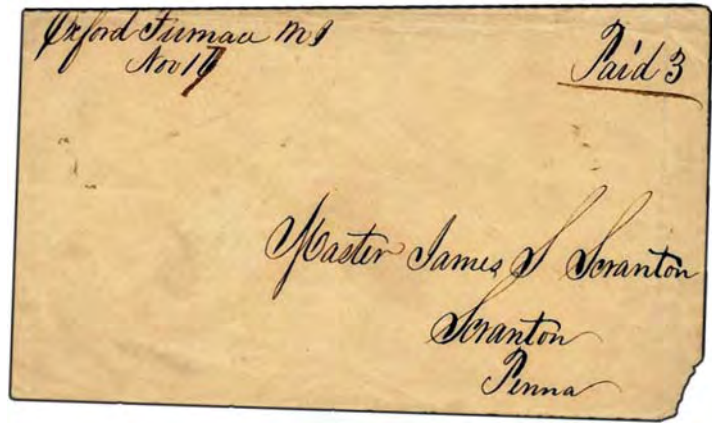 Oxford Furnace NJ
Nov 17
Paid 3
Master James S Scranton
Scranton
Penna